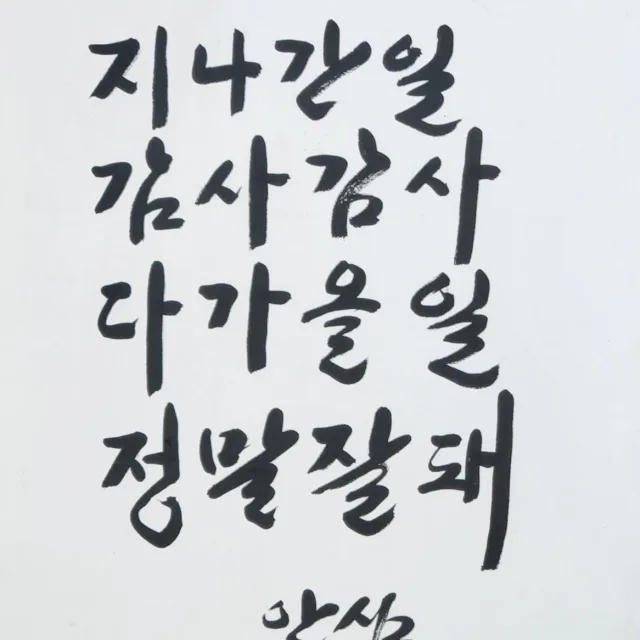 지나간일
감사감사
다가올일
정말잘돼